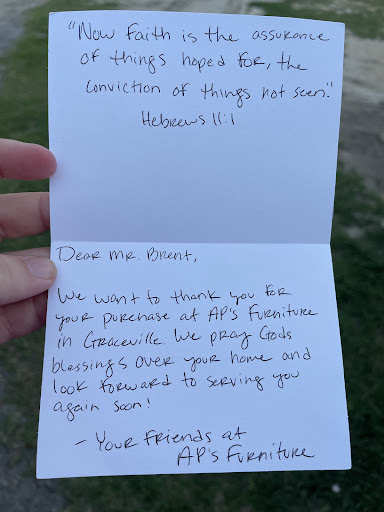 "Now Faith is the assurance
of things hoped for, the
conviction of things not seen."
Hebrews 11:1
Dear Mr. Brent,
We want to thank you for
your purchase at AP's Furniture
in Graceville. We pray Gods
blessings over your home and
look forward to serving you
again soon!
- Your Friends at
AP's Furniture